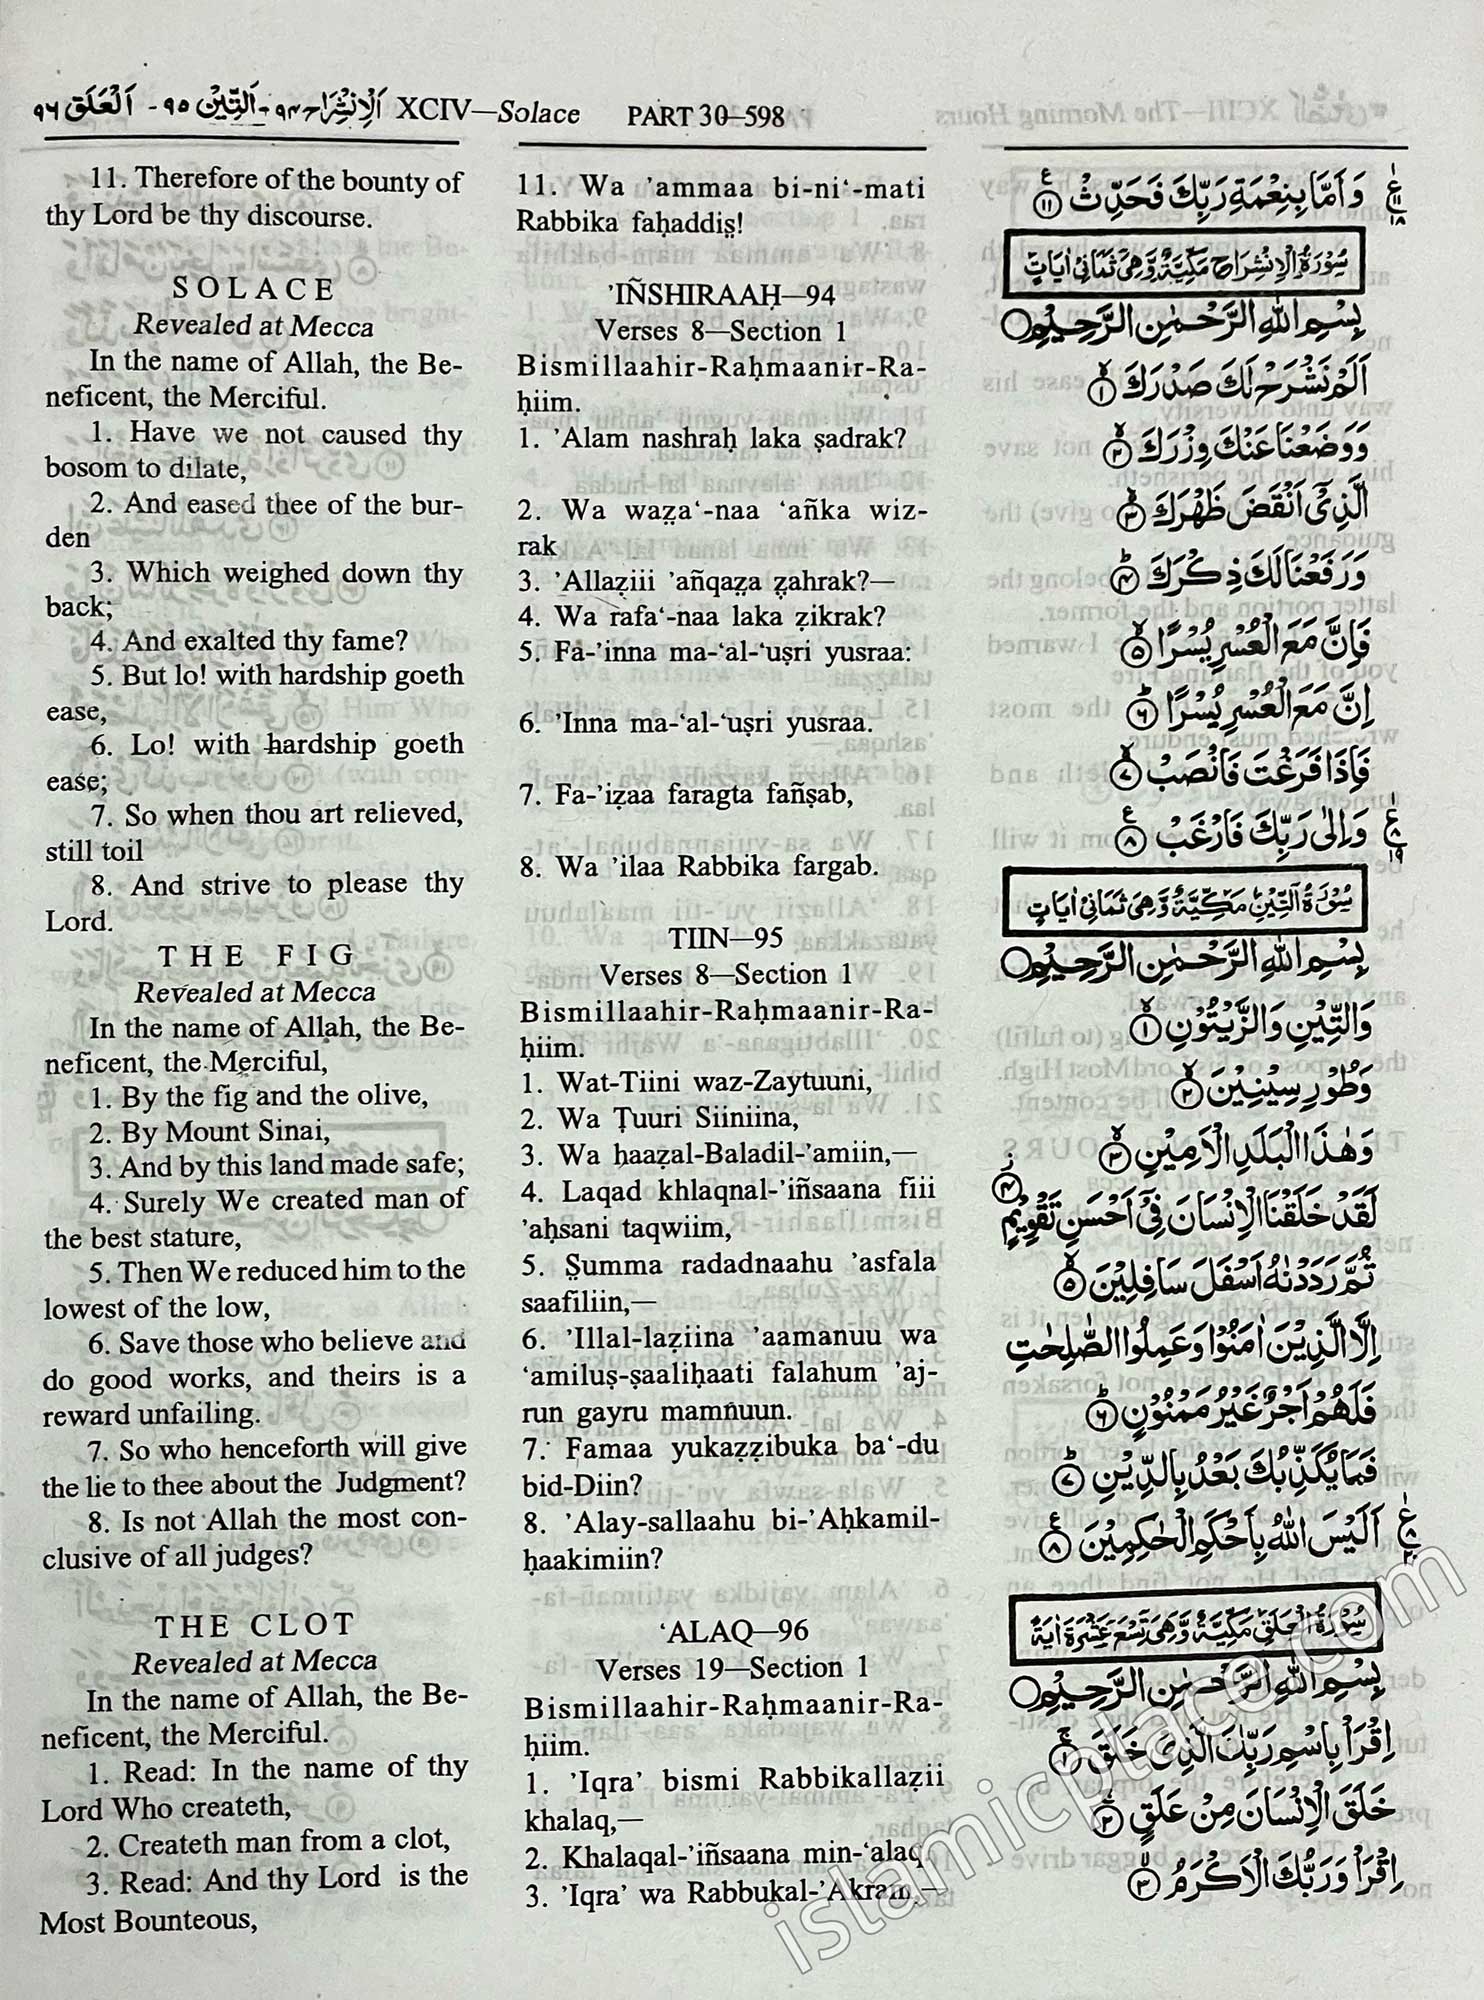 اَلْاِنْشِرَاح ٩٤ - اَلتِّيْن ٩٥ - اَلْعَلَق ٩٦ XCIV—Solace PART 30–598
11. Therefore of the bounty of
thy Lord be thy discourse.
SOLACE
Revealed at Mecca
In the name of Allah, the Be-
neficent, the Merciful.
1. Have we not caused thy
bosom to dilate,
2. And eased thee of the bur-
den
3. Which weighed down thy
back;
4. And exalted thy fame?
5. But lo! with hardship goeth
ease,
6. Lo! with hardship goeth
ease;
7. So when thou art relieved,
still toil
8. And strive to please thy
Lord.
THE FIG
Revealed at Mecca
In the name of Allah, the Be-
neficent, the Merciful,
1. By the fig and the olive,
2. By Mount Sinai,
3. And by this land made safe;
4. Surely We created man of
the best stature,
5. Then We reduced him to the
lowest of the low,
6. Save those who believe and
do good works, and theirs is a
reward unfailing.
7. So who henceforth will give
the lie to thee about the Judgment?
8. Is not Allah the most con-
clusive of all judges?
THE CLOT
Revealed at Mecca
In the name of Allah, the Be-
neficent, the Merciful.
1. Read: In the name of thy
Lord Who createth,
2. Createth man from a clot,
3. Read: And thy Lord is the
Most Bounteous,
11. Wa ’ammaa bi-ni‘-mati
Rabbika faḥaddis̤!
’IÑSHIRAAḤ—94
Verses 8—Section 1
Bismillaahir-Raḥmaanir-Ra-
ḥiim.
1. ’Alam nashraḥ laka ṣadrak?
2. Wa waẓa‘-naa ‘añka wiz-
rak
3. ’Allaẓiii ’añqaẓa ẓahrak?—
4. Wa rafa‘-naa laka ẓikrak?
5. Fa-’inna ma-‘al-‘uṣri yusraa:
6. ’Inna ma-‘al-‘uṣri yusraa.
7. Fa-’iẓaa faragta fañṣab,
8. Wa ’ilaa Rabbika fargab.
TIIN—95
Verses 8—Section 1
Bismillaahir-Raḥmaanir-Ra-
ḥiim.
1. Wat-Tiini waz-Zaytuuni,
2. Wa Ṭuuri Siiniina,
3. Wa haaẓal-Baladil-’amiin,—
4. Laqad khlaqnal-’iñsaana fiii
’aḥsani taqwiim,
5. S̤umma radadnaahu ’asfala
saafiliin,—
6. ’Illal-laẓiina ’aamanuu wa
‘amiluṣ-ṣaaliḥaati falahum ’aj-
run gayru mamnuun.
7. Famaa yukaẓẓibuka ba‘-du
bid-Diin?
8. ’Alay-sallaahu bi-’Aḥkamil-
ḥaakimiin?
‘ALAQ—96
Verses 19—Section 1
Bismillaahir-Raḥmaanir-Ra-
ḥiim.
1. ’Iqra’ bismi Rabbikallaẓii
khalaq,—
2. Khalaqal-’iñsaana min-‘alaq
3. ’Iqra’ wa Rabbukal-’Akram,—
وَاَمَّا بِنِعْمَةِ رَبِّكَ فَحَدِّثْ ۝١١
سُوْرَةُ الْاِنْشِرَاحِ مَكِّيَّةٌ وَّهِیَ ثَمَانِیْ اٰیَاتٍ
بِسْمِ اللّٰهِ الرَّحْمٰنِ الرَّحِیْمِ ۝
اَلَمْ نَشْرَحْ لَكَ صَدْرَكَ ۝١
وَوَضَعْنَا عَنْكَ وِزْرَكَ ۝٢
الَّذِیْۤ اَنْقَضَ ظَهْرَكَ ۝٣
وَرَفَعْنَا لَكَ ذِكْرَكَ ۝٤
فَاِنَّ مَعَ الْعُسْرِ یُسْرًا ۝٥
اِنَّ مَعَ الْعُسْرِ یُسْرًا ۝٦
فَاِذَا فَرَغْتَ فَانْصَبْ ۝٧
وَاِلٰی رَبِّكَ فَارْغَبْ ۝٨
سُوْرَةُ التِّیْنِ مَكِّیَّةٌ وَّهِیَ ثَمَانِیْ اٰیَاتٍ
بِسْمِ اللّٰهِ الرَّحْمٰنِ الرَّحِیْمِ ۝
وَالتِّیْنِ وَالزَّیْتُوْنِ ۝١
وَطُوْرِ سِیْنِیْنَ ۝٢
وَهٰذَا الْبَلَدِ الْاَمِیْنِ ۝٣
لَقَدْ خَلَقْنَا الْاِنْسَانَ فِیْۤ اَحْسَنِ تَقْوِیْمٍ ۝٤
ثُمَّ رَدَدْنٰهُ اَسْفَلَ سَافِلِیْنَ ۝٥
اِلَّا الَّذِیْنَ اٰمَنُوْا وَعَمِلُوا الصّٰلِحٰتِ
فَلَهُمْ اَجْرٌ غَیْرُ مَمْنُوْنٍ ۝٦
فَمَا یُكَذِّبُكَ بَعْدُ بِالدِّیْنِ ۝٧
اَلَیْسَ اللّٰهُ بِاَحْكَمِ الْحٰكِمِیْنَ ۝٨
سُوْرَةُ الْعَلَقِ مَكِّیَّةٌ وَّهِیَ تِسْعَ عَشْرَةَ اٰیَةً
بِسْمِ اللّٰهِ الرَّحْمٰنِ الرَّحِیْمِ ۝
اِقْرَاْ بِاسْمِ رَبِّكَ الَّذِیْ خَلَقَ ۝١
خَلَقَ الْاِنْسَانَ مِنْ عَلَقٍ ۝٢
اِقْرَاْ وَرَبُّكَ الْاَكْرَمُ ۝٣
islamicplace.com